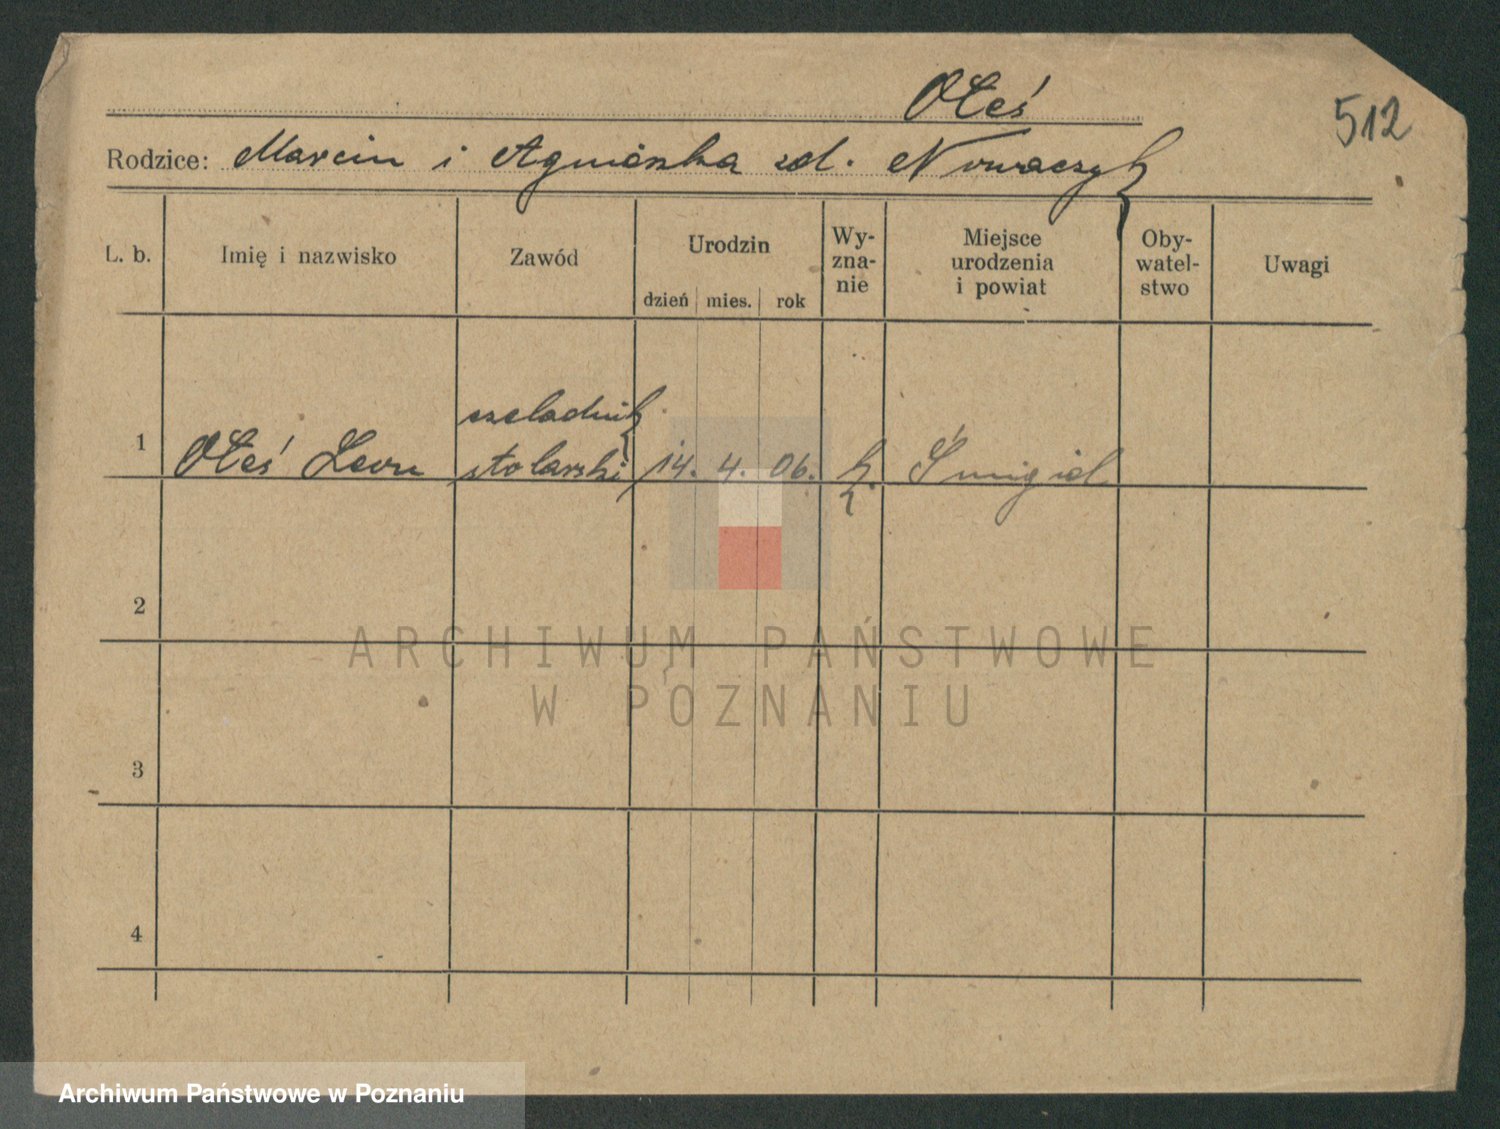 Oleś
512
Rodzice: Marcin i Agnieszka zd. Nowaczyk
L. b. Imię i nazwisko Zawód Urodzin Wy-zna-nie Miejsce urodzenia i powiat Oby-watel-stwo Uwagi
dzień mies. rok
1 czeladnik
Oleś Leon stolarski 14. 4. 06. k. Śmigiel
2
ARCHIWUM PAŃSTWOWE
W POZNANIU
3
4
Archiwum Państwowe w Poznaniu